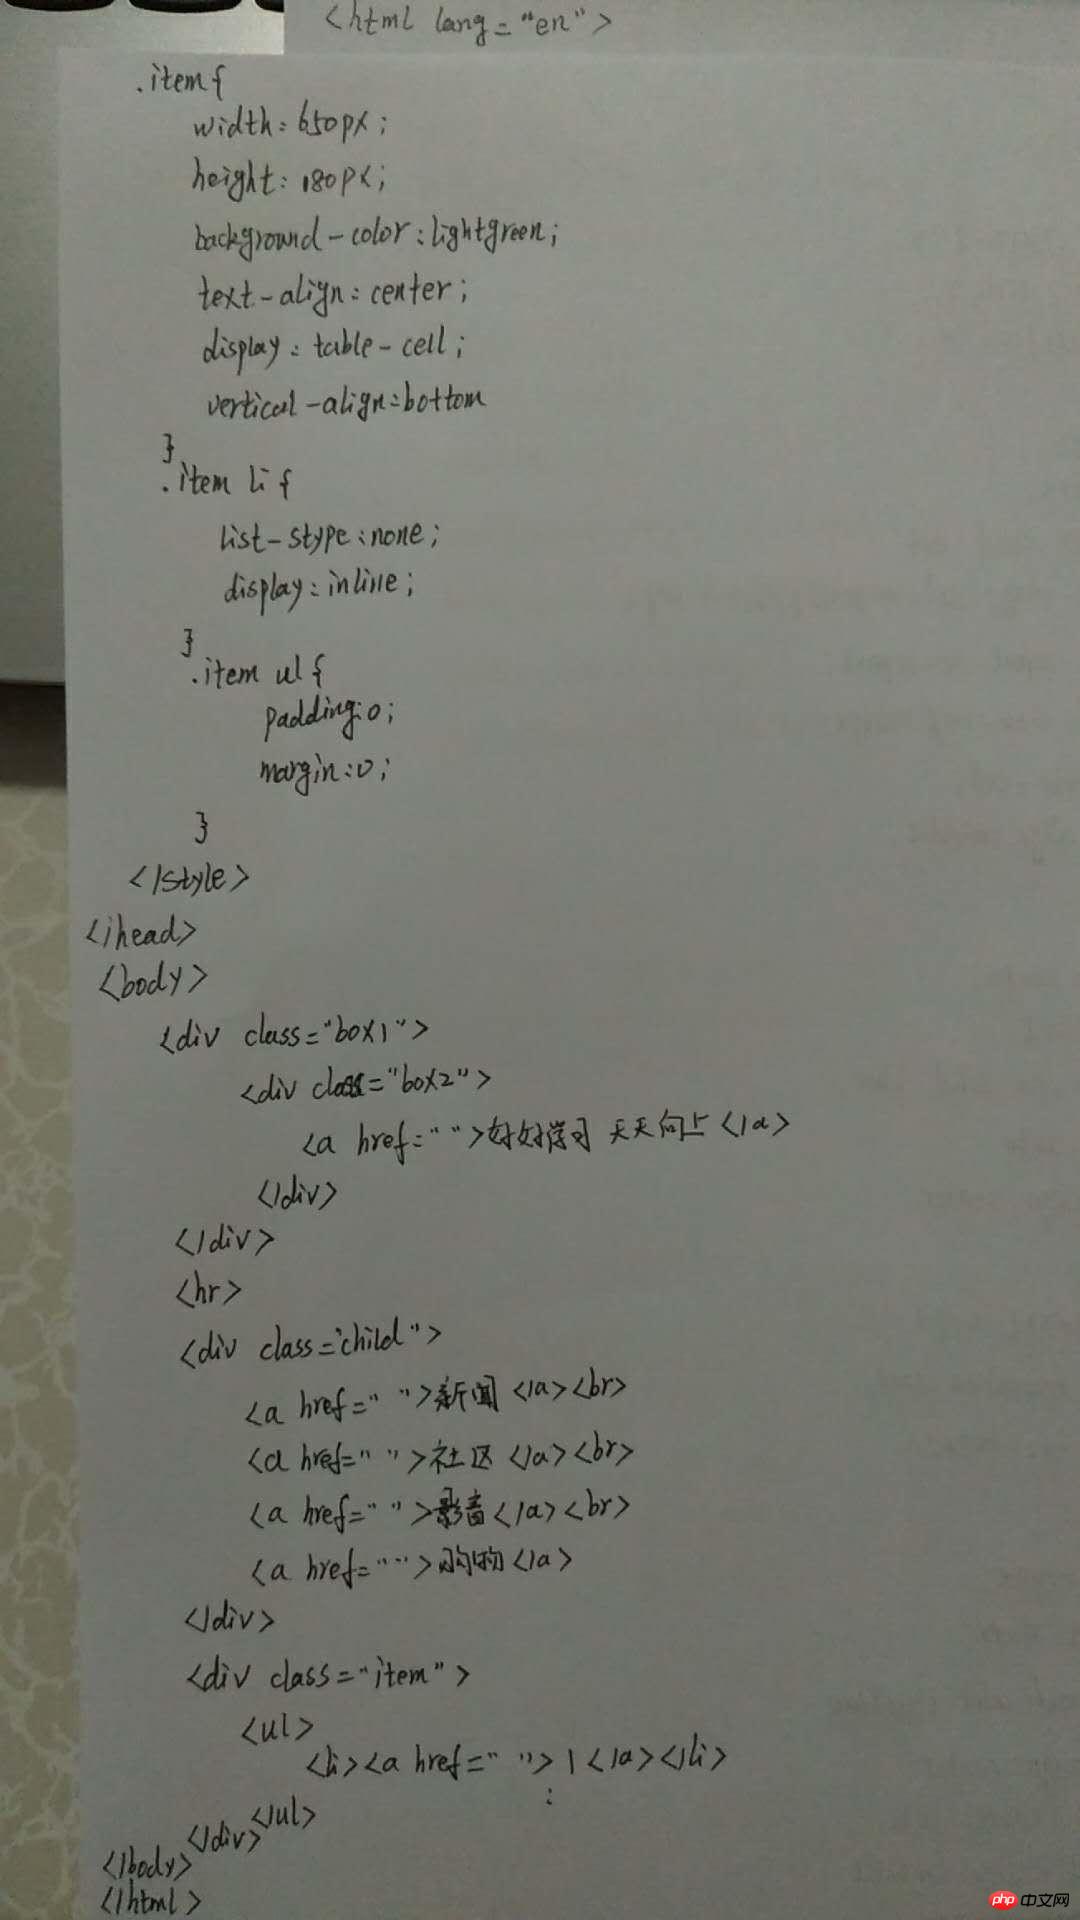 <html lang="en">
.item{
width:650px;
height:180px;
background-color:lightgreen;
text-align:center;
display:table-cell;
vertical-align:bottom
}
.item li{
list-stype:none;
display:inline;
}
.item ul{
padding:0;
margin:0;
}
</style>
</head>
<body>
<div class="box1">
<div class="box2">
<a href="">好好学习 天天向上</a>
</div>
</div>
<hr>
<div class="child">
<a href="">新闻</a><br>
<a href="">社区</a><br>
<a href="">影音</a><br>
<a href="">购物</a>
</div>
<div class="item">
<ul>
<li><a href="">1</a></li>
:
</ul>
</div>
</body>
</html>
php 中文网